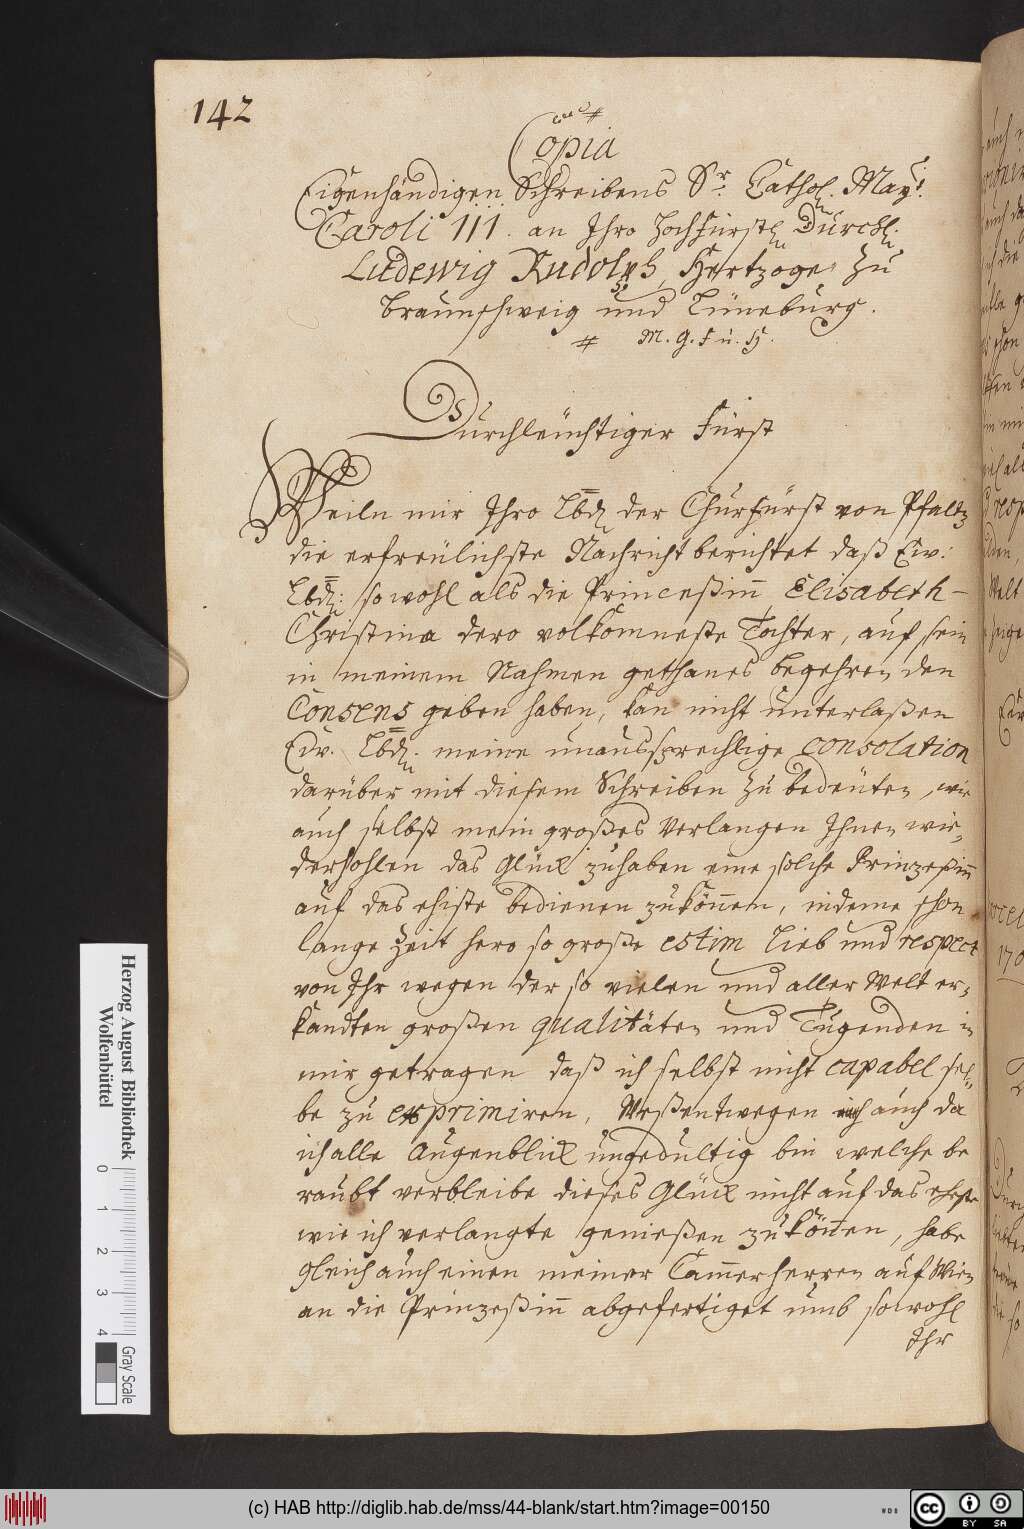 142
Copia
Eigenhändigen Schreibens Sr. Cathol. May.
Caroli III. an Ihro Hochfürstl. Durchl.
Ludewig Rudolph, Hertzoge zu
Braunschweig und Lüneburg.
M. G. F u. H.
Durchleüchtiger Fürst
Weiln mir Ihro Lbd. der Churfürst von Pfaltz
die erfreülichste Nachricht berichtet daß Ew:
Lbd: sowohl als die Princeßinn Elisabeth-
Christina dero volkomneste Tochter, auf sein
in meinem Nahmen gethanes begehren den
Consens geben haben, kan nicht unterlaßen
Ew. Lbd. meine unaussprechlige consolation
darüber mit diesem Schreiben zu bedeüten, wie
auch selbst mein großes Verlangen Ihnen wie-
derhohlen das Glück zuhaben eine solche Prinzeßinn
auf das ehiste bedienen zukönnen, indeme schon
lange Zeit hero so große estim Lieb und respect
von Ihr wegen der so vielen und aller Welt er-
kandten großen qualitäten und Tugenden in
mir getragen daß ich selbst nicht capabel sel-
be zu exprimiren, Weßentwegen auch da
ich alle Augenblick ungedultig bin welche be
raubt verbleibe dieses Glück nicht auf das eheste
wie ich verlangte genießen zukönnen, habe
gleich auch einen meiner Cammerherren auf Wien
an die Prinzeßinn abgefertiget umb sowohl
Ihr
Herzog August Bibliothek
Wolfenbüttel
0 1 2 3 4
Gray Scale
(c) HAB http://diglib.hab.de/mss/44-blank/start.htm?image=00150
WDB
cc BY SA